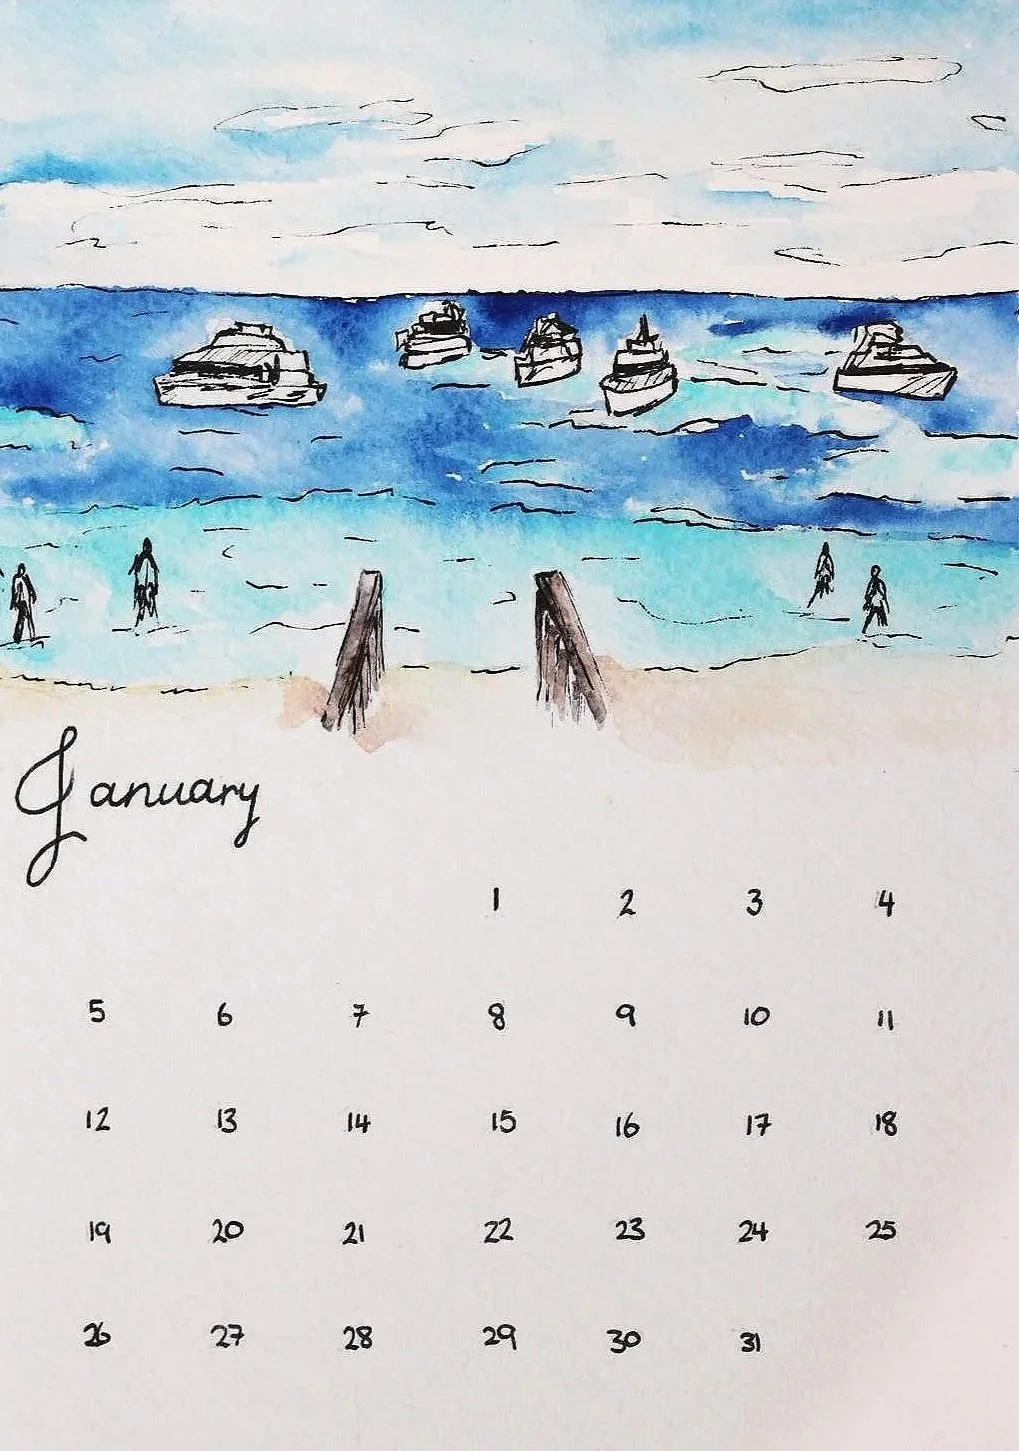 January
1 2 3 4
5 6 7 8 9 10 11
12 13 14 15 16 17 18
19 20 21 22 23 24 25
26 27 28 29 30 31